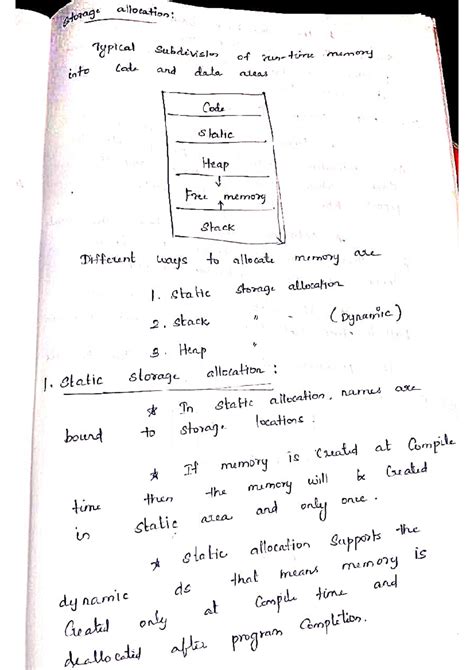 Storage allocation:
Typical Subdivision of run-time memory
into Code and data areas
Code
Static
Heap
↓
Free memory
↑
Stack
Different ways to allocate memory are
1. Static Storage allocation
2. Stack " " (Dynamic)
3. Heap "
1. Static Storage allocation:
* In static allocation, names are
bound to storage locations.
* If memory is Created at Compile
time then the memory will be Created
in static area and only once.
* Static allocation Supports the
dynamic ds that means memory is
Created only at Compile time and
deallocated after program Completion.